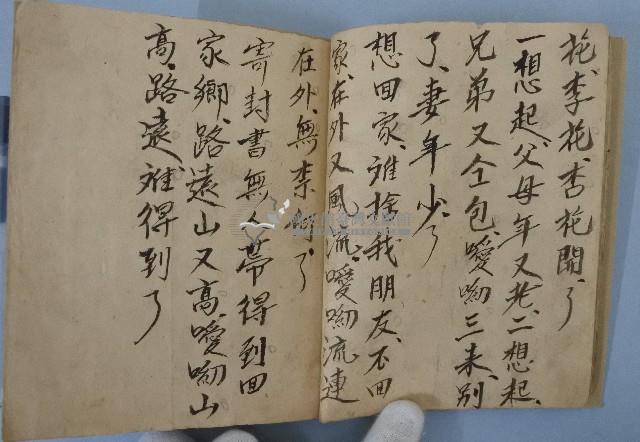 花、李花、杏花開、了
一想起、父母年又老、二想起、
兄弟又仝包、噯喲三来、別
了、妻年少、了
想回家、难捨我朋友、不回
家、在外又風流、噯喲流連
在外、無柰何、了
寄封書無人帶得到回
家鄉、路遠山又高、噯喲山
高、路遠难得到了